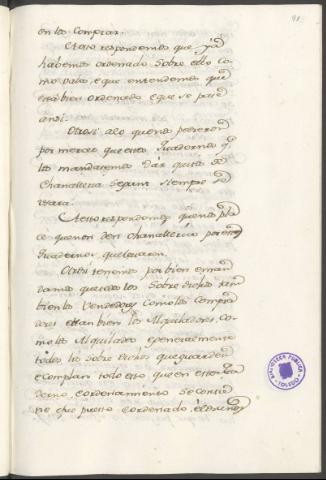 en las Compras.
Aesto respondemos que ja
habemos ordenado sobre ello Co
mo vala, e que entendemos que
está bien ordenado e que se pase
ansi.
Otrosi alo que nos pedieron
por merced que estos Quadernos q.
les mandaremos dar quitos de
Chancilleria segunt siempre se
usara.
Aesto respondemos que nos pla
ce que non den chancilleria por estos
Quadernos, que levaren.
Otrosi tenemos por bien e man
damos que todos los sobre dichos tan
bien los Vendedores como los Compra
dores e tan bien los Alquiladores, co
mo los Alquilados e generalmente
todos los sobre dichos que guarden
e complan todo esto que en este Qua
derno, e ordenamiento se conti
ne que puesto e ordenado, é los unos
91.
BIBLIOTECA PUBLICA
TOLEDO